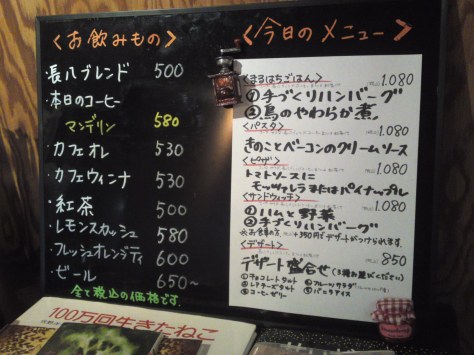 <お飲みもの>
・長八ブレンド 500
・本日のコーヒー
マンデリン 580
・カフェオレ 530
・カフェウィンナ 530
・紅茶 500
・レモンスカッシュ 580
・フレッシュオレンジティ 600
・ビール 650~
全て税込の価格です。
<今日のメニュー>
<まるはちごはん> 1.080
①手づくりハンバーグ
②鳥のやわらか煮
<パスタ> 1.080
きのことベーコンのクリームソース
<ピザ> 1.080
トマトソースに
モッツァレラまたはパイナップル
<サンドウィッチ> 1.080
①ハムと野菜
②手づくりハンバーグ
※お食事の方、+350円でデザートがつけられます。
<デザート> 850
デザート盛合せ(3種お選びください)
①チョコレートタルト ④フルーツサラダ
②レアチーズタルト ⑤バニラアイス
③コーヒーゼリー
100万回生きたねこ